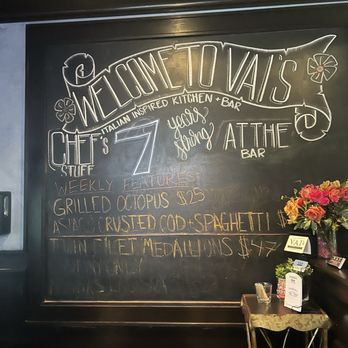 WELCOME TO VAI'S
ITALIAN INSPIRED KITCHEN + BAR
CHEF'S
STUFF
7 years
strong
AT THE
BAR
WEEKLY FEATURES
GRILLED OCTOPUS $25
CRUSTED COD + SPAGHETTI $
TWIN FILET MEDALLIONS $47
ONLY
VAI'S